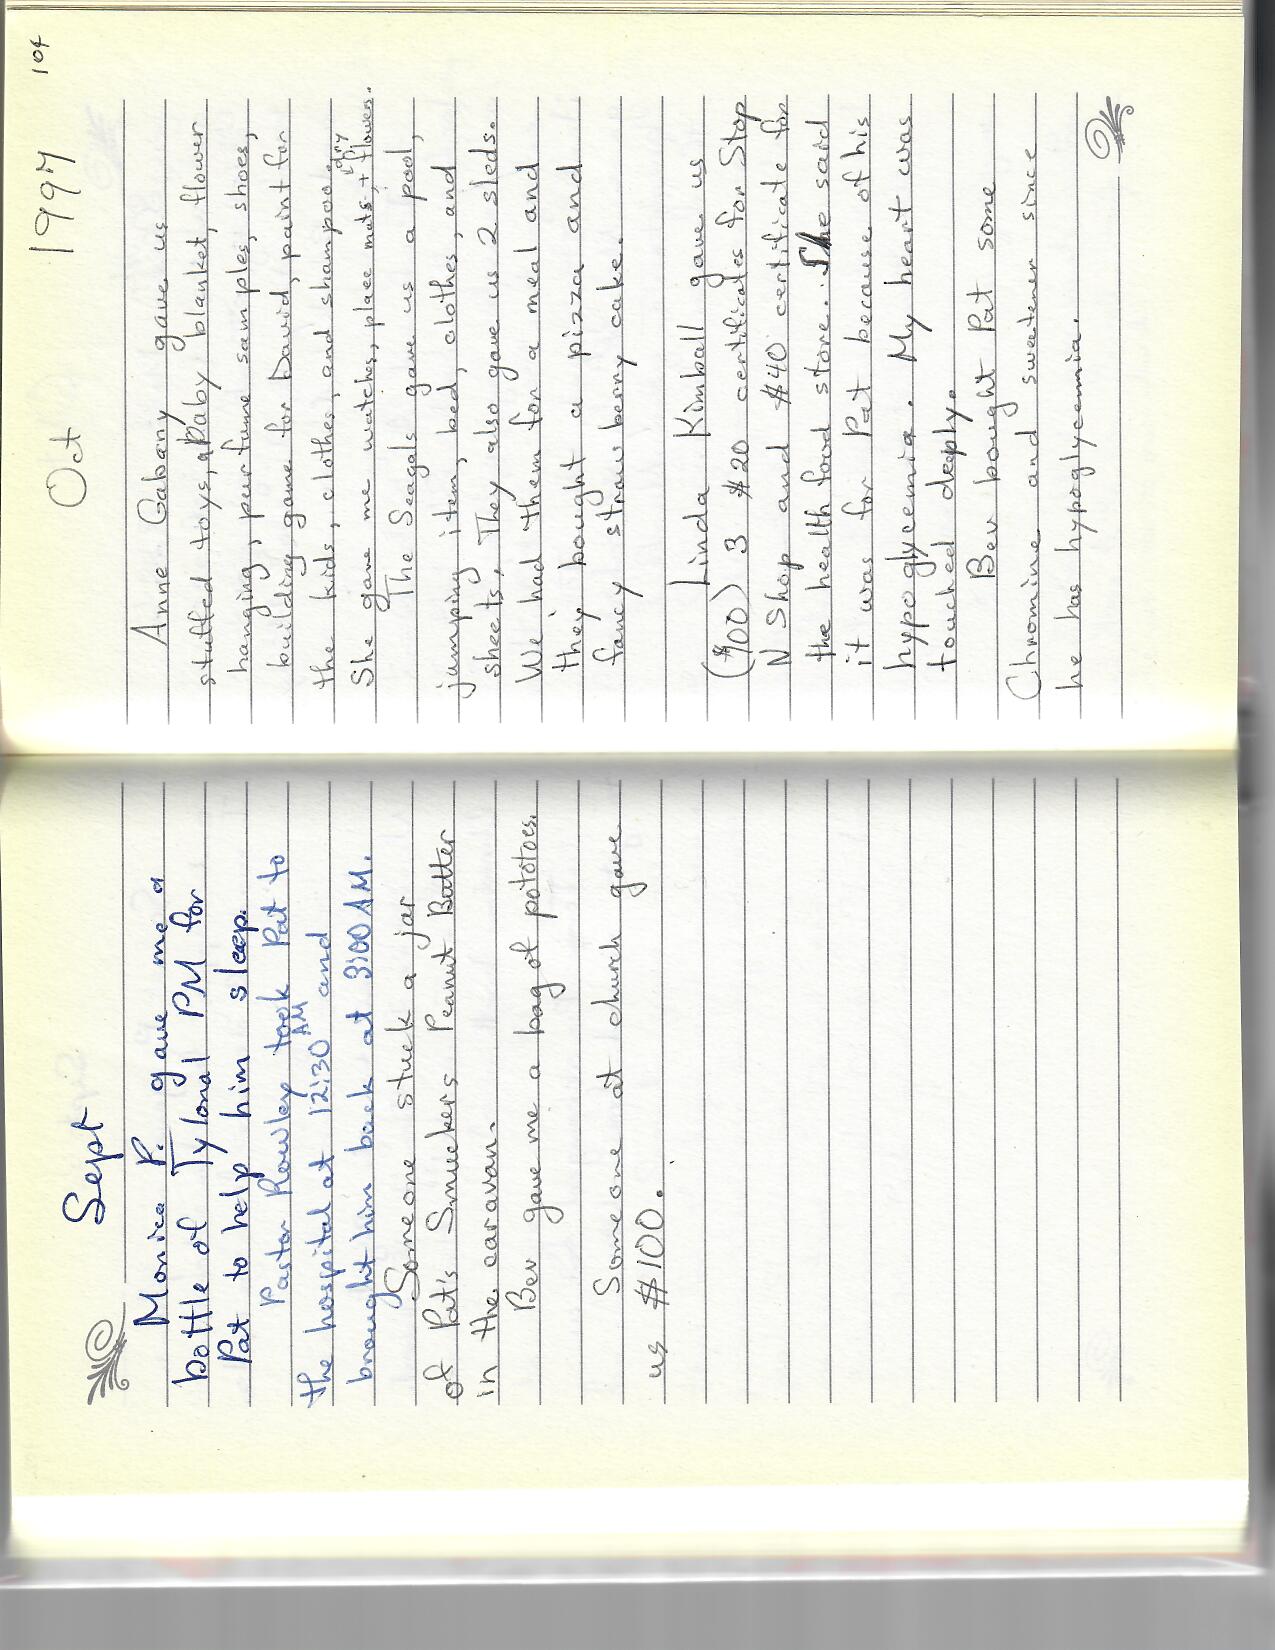 Sept
Monica P. gave me a
bottle of Tylonal PM for
Pat to help him sleep.
Pastor Rowley took Pat to
the hospital at 12:30 AM and
brought him back at 3:00 AM.
Someone stuck a jar
of Pat's Smuckers Peanut Butter
in the caravan.
Bev gave me a bag of potatoes.
Someone at church gave
us $100.
Oct 1997 104
Anne Gabany gave us
stuffed toys, a baby blanket, flower
hanging, perfume samples, shoes,
building game for David, paint for
the kids, clothes, and shampoo.
She gave me watches, place mats, + dry flowers.
The Seagels gave us a pool,
jumping item, bed, clothes, and
sheets, They also gave us 2 sleds.
We had them for a meal and
they bought a pizza and
fancy straw berry cake.
Linda Kimball gave us
($100) 3 $20 certificates for Stop
N Shop and $40 certificate for
the health food store. She said
it was for Pat because of his
hypoglycemia. My heart was
touched deeply.
Bev bought Pat some
Chromine and sweetener since
he has hypoglycemia.